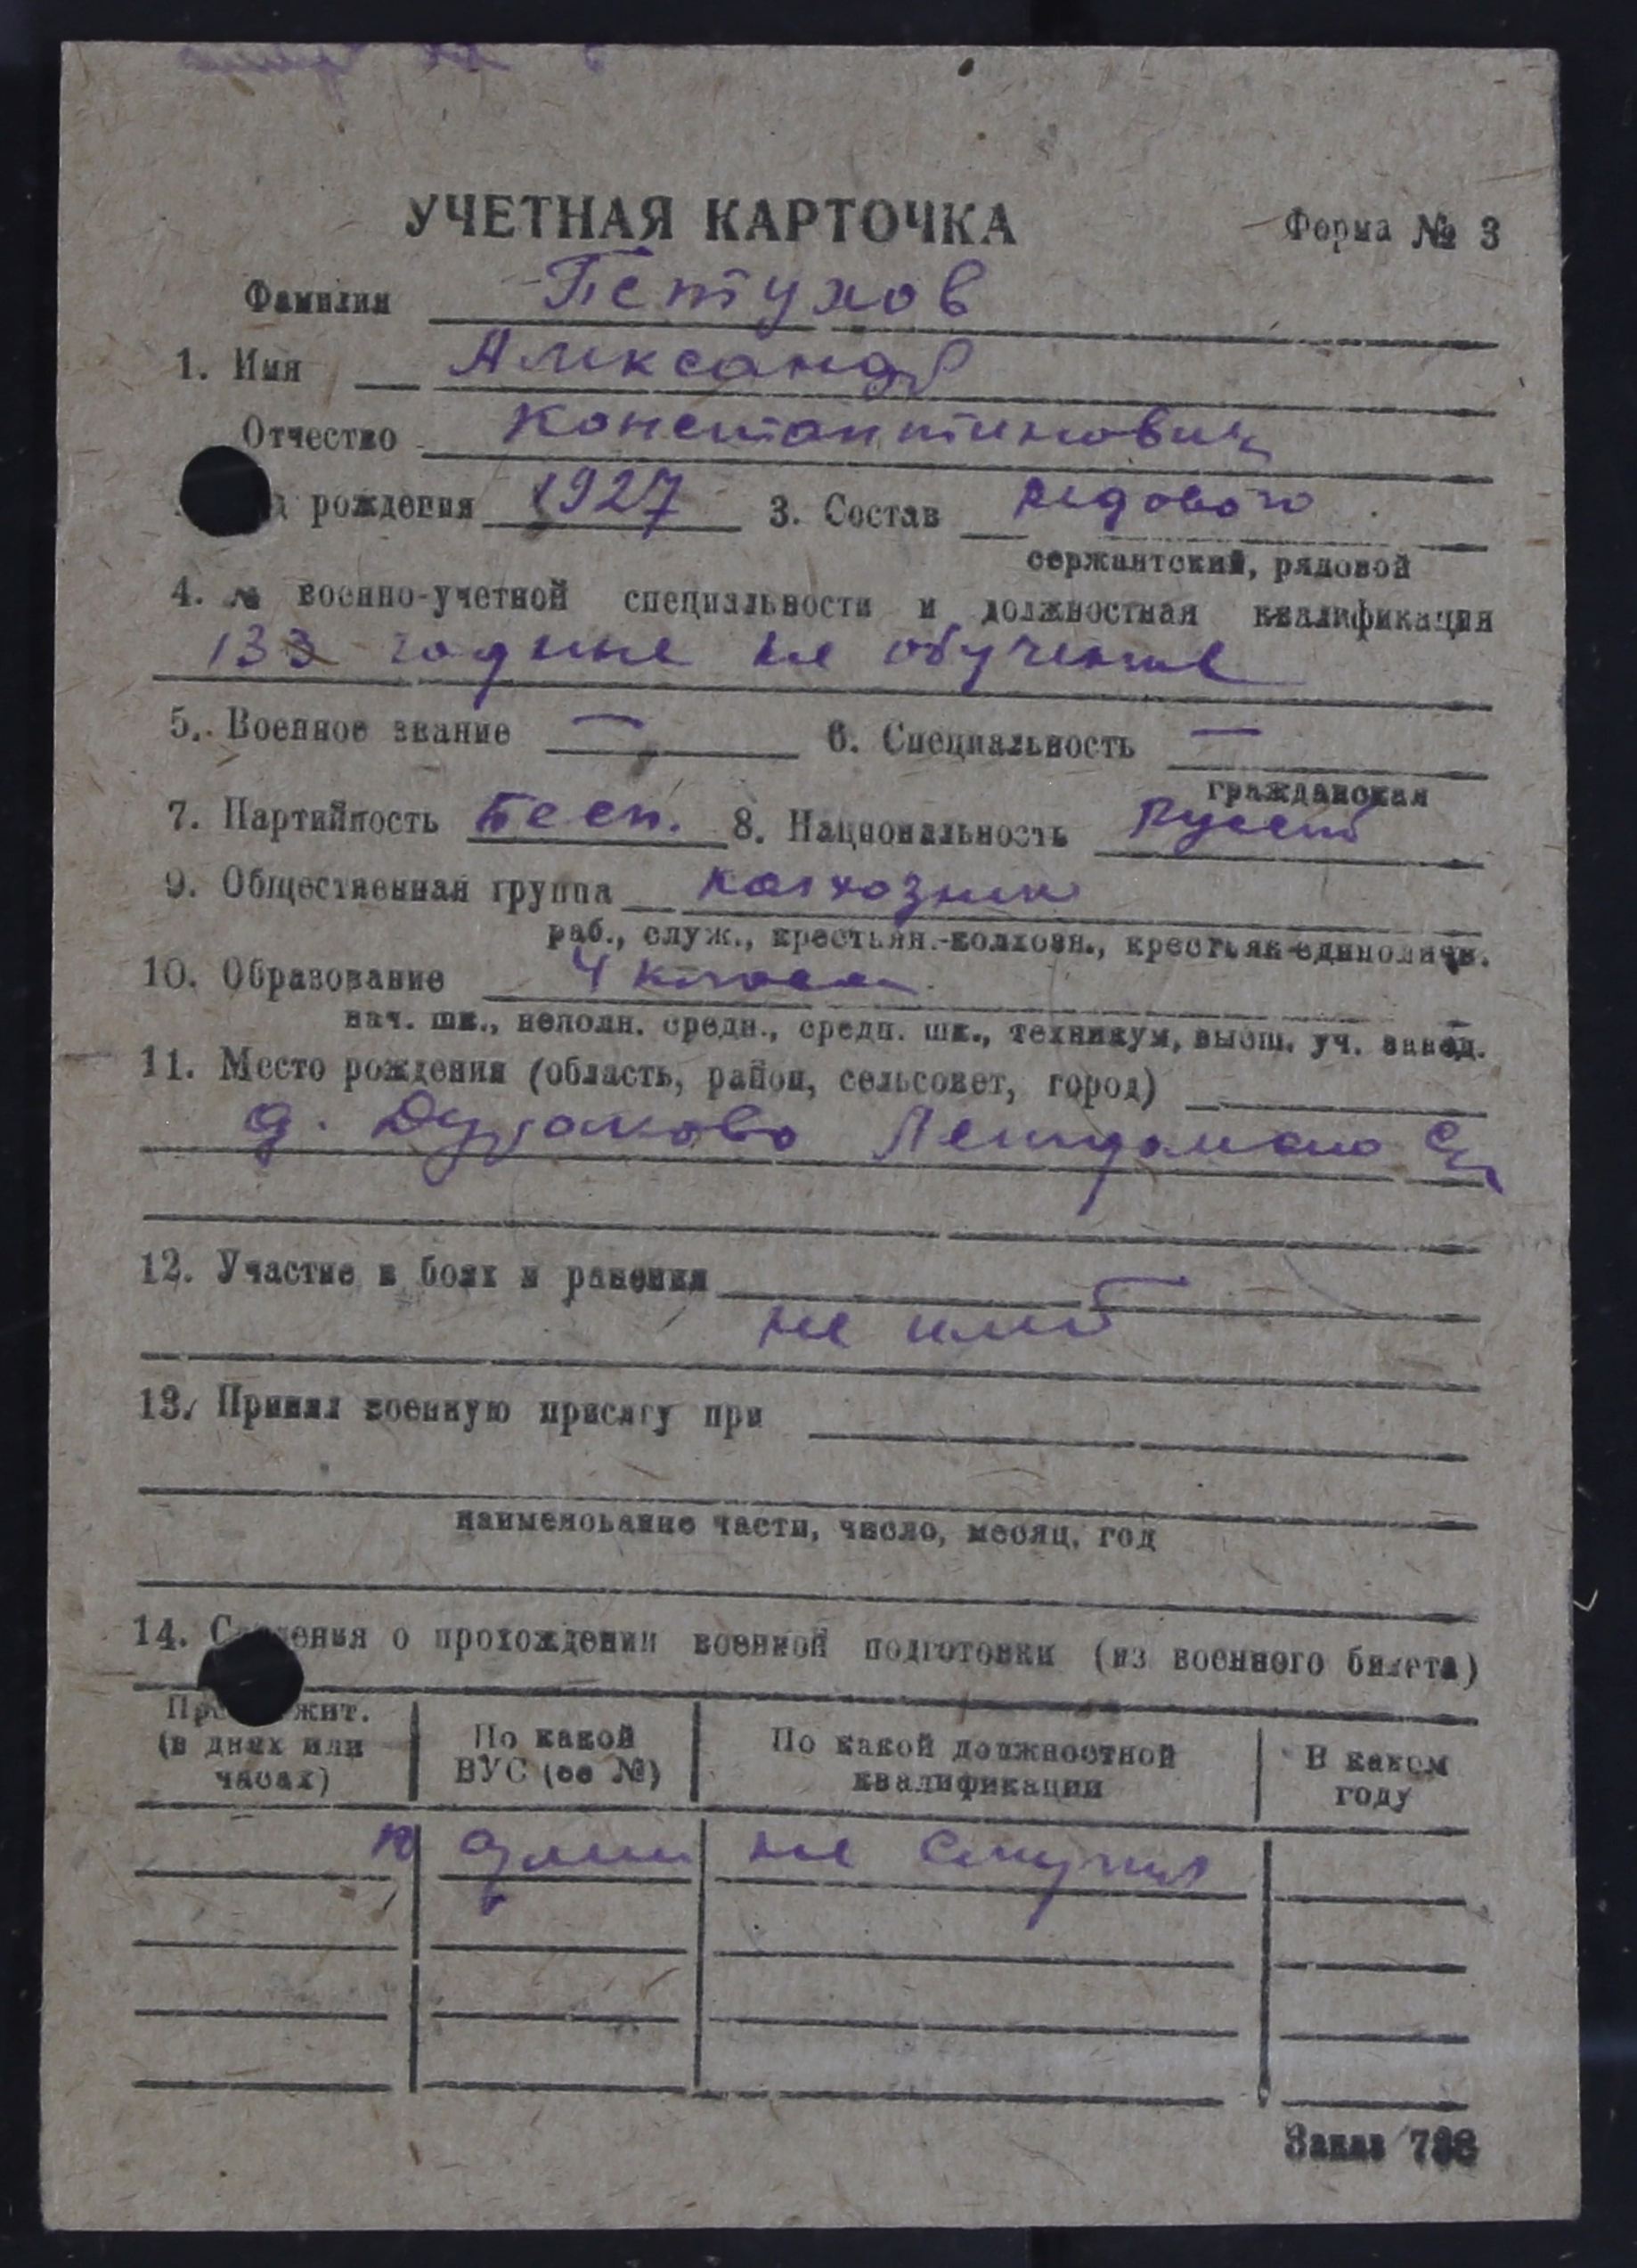 УЧЕТНАЯ КАРТОЧКА Форма № 3
Фамилия Петухов
1. Имя Александр
Отчество Константинович
рождения 1927 3. Состав рядового
сержантский, рядовой
4. № военно-учетной специальности и должностная квалификация
133 годные не обученные
5. Военное звание — 6. Специальность —
гражданская
7. Партийность Бесп. 8. Национальность Русский
9. Общественная группа колхозник
раб., служ., крестьян.-колхозн., крестьян-единоличн.
10. Образование 4 класса
нач. шк., неполн. средн., средн. шк., техникум, высш. уч. завед.
11. Место рождения (область, район, сельсовет, город)
д.
12. Участие в боях и ранения
не имеет
13. Принял военную присягу при
наименование части, число, месяц, год
14. Сведения о прохождении военной подготовки (из военного билета)
жит. (в днях или часах) По какой ВУС (ее №) По какой должностной квалификации В каком году
не служил
Заказ